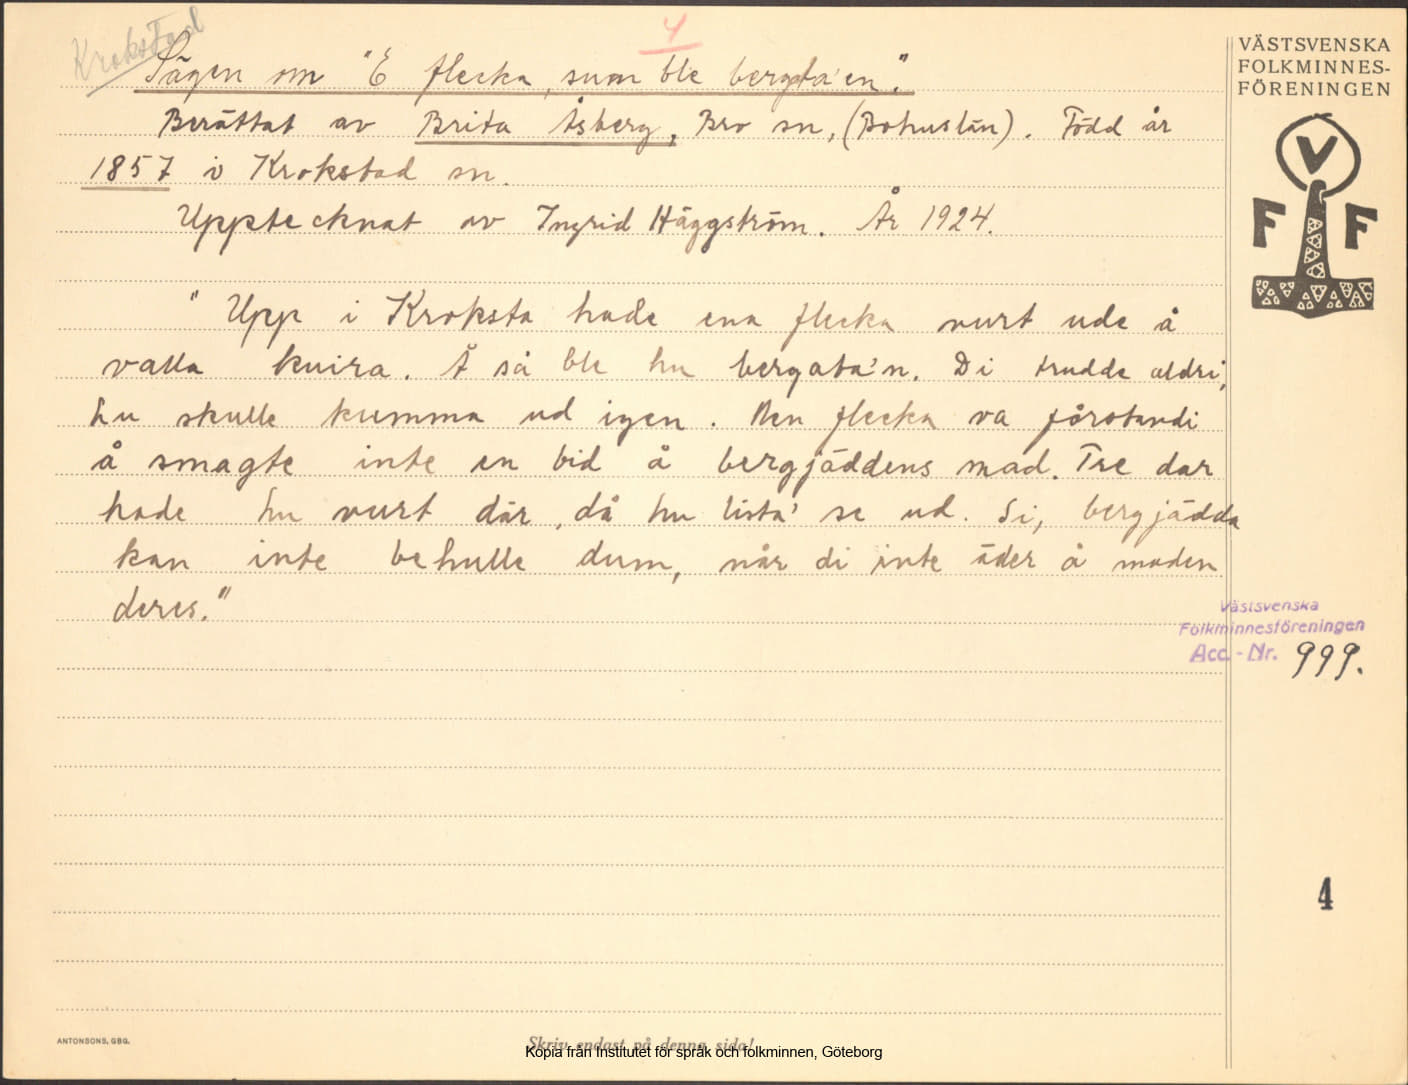 Krokstad
4
Sägen om "E flecka, sum ble bergata'en."
Berättat av Brita Åsberg, Bro sn, (Bohuslän). Född år
1857 i Krokstad sn.
Upptecknat av Ingrid Häggström. År 1924.
" Upp i Kroksta hade ena flecka vurt ude å
valla kvira. Å så ble hu bergata'n. Di trudde aldri,
hu skulle kumma ud igen. Men flecka va fårstandi
å smagte inte en bid å bergjäddens mad. Tre dar
hade hu vurt där, då hu lista' se ud. Si, bergjädda
kan inte behulle dum, når di inte äder å maden
deres."
VÄSTSVENSKA
FOLKMINNES-
FÖRENINGEN
V
F F
Västsvenska
Folkminnesföreningen
Acc.-Nr. 999.
4
ANTONSONS, GBG.
Skriv endast på denna sida!
Kopia från Institutet för språk och folkminnen, Göteborg